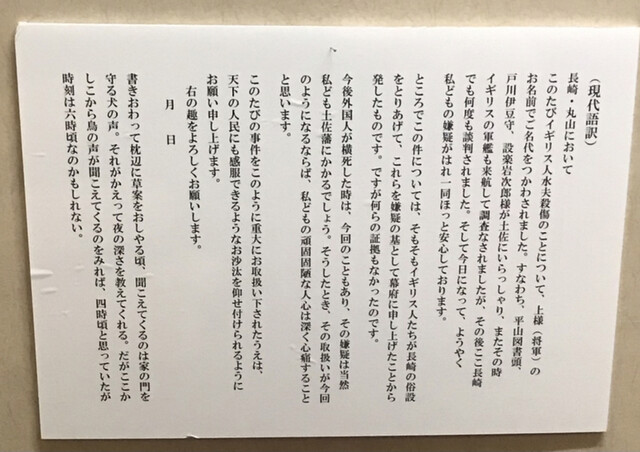 （現代語訳）
長崎・丸山において
このたびイギリス人水夫殺傷のことについて、上様（将軍）の
お名前でご名代をつかわされました。すなわち、平山図書頭、
戸川伊豆守、設楽岩次郎様が土佐にいらっしゃり、またその時
イギリスの軍艦も来航して調査なされましたが、その後ここ長崎
でも何度も談判されました。そして今日になって、ようやく
私どもの嫌疑がはれ一同ほっと安心しております。
ところでこの件については、そもそもイギリス人たちが長崎の俗説
をとりあげて、これらを嫌疑の基として幕府に申し上げたことから
発したものです。ですが何らの証拠もなかったのです。
今後外国人が横死した時は、今回のこともあり、その嫌疑は当然
私ども土佐藩にかかるでしょう。そうしたとき、その取扱いが今回
のようになるならば、私どもの頑固固陋な人心は深く心痛すること
と思います。
このたびの事件をこのように重大にお取扱い下されたうえは、
天下の人民にも感服できるようなお沙汰を仰せ付けられるように
お願い申し上げます。
右の趣をよろしくお願いします。
月　日
書きおわって枕辺に草案をおしやる頃、聞こえてくるのは家の門を
守る犬の声。それがかえって夜の深さを教えてくれる。だがここか
しこから鳥の声が聞こえてくるのをみれば、四時頃と思っていたが
時刻は六時頃なのかもしれない。